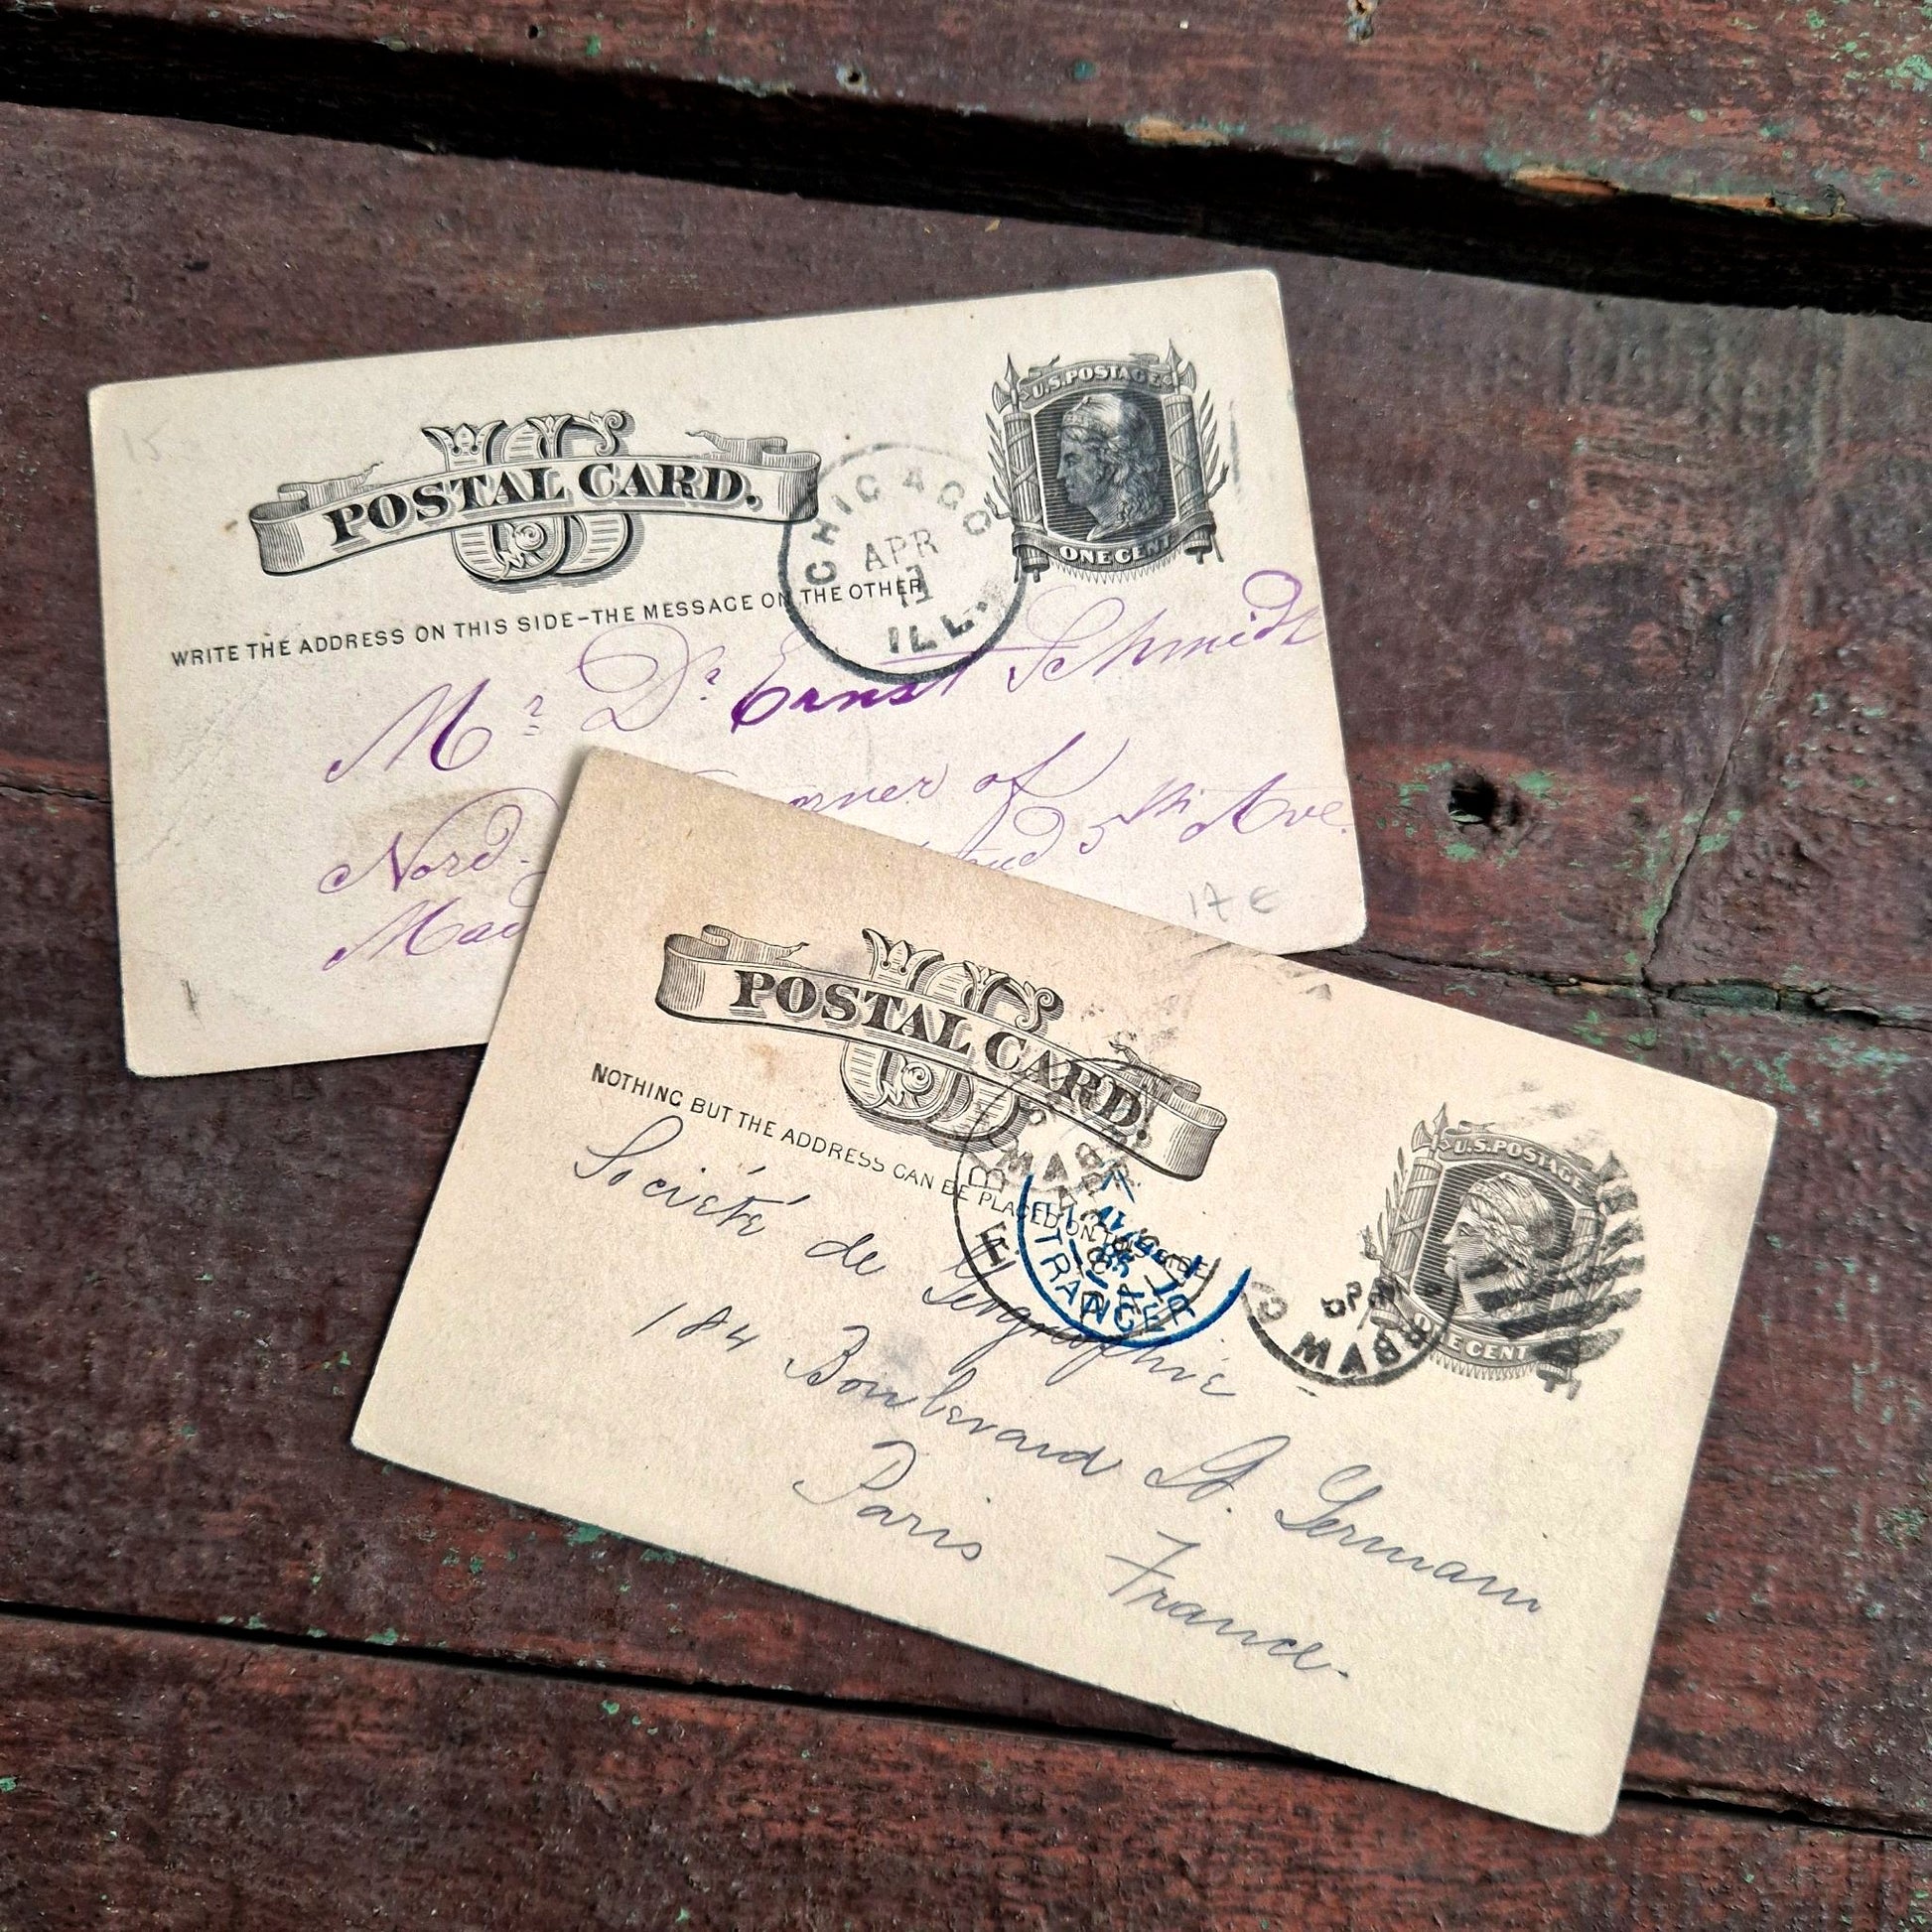 15
US
POSTAL CARD.
U.S. POSTAGE
ONE CENT
CHICAGO
APR
ILL.
WRITE THE ADDRESS ON THIS SIDE-THE MESSAGE ON THE OTHER
Mr. Dr. Ernst Schmidt
Nord- orner of
Mad 5th Ave.
17 €
US
POSTAL CARD.
NOTHING BUT THE ADDRESS CAN BE PLACED ON THIS SIDE
U.S. POSTAGE
ONE CENT
ETRANGER
Societé de Geographie
184 Boulevard St. Germain
Paris France.